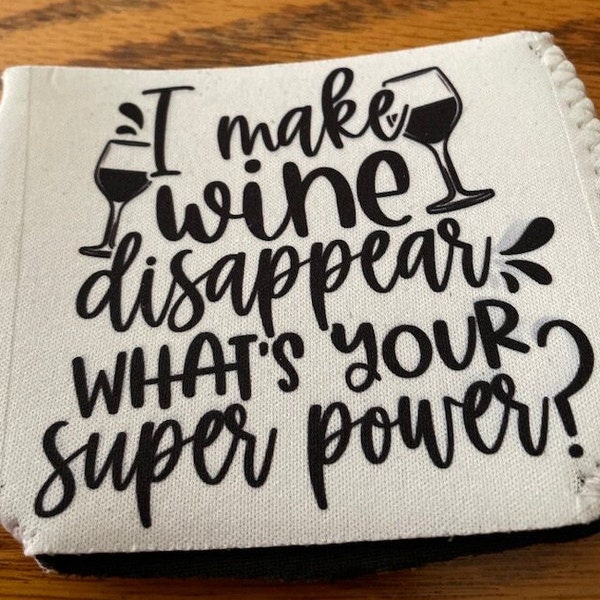 I make
wine
disappear
WHAT'S YOUR
super power?